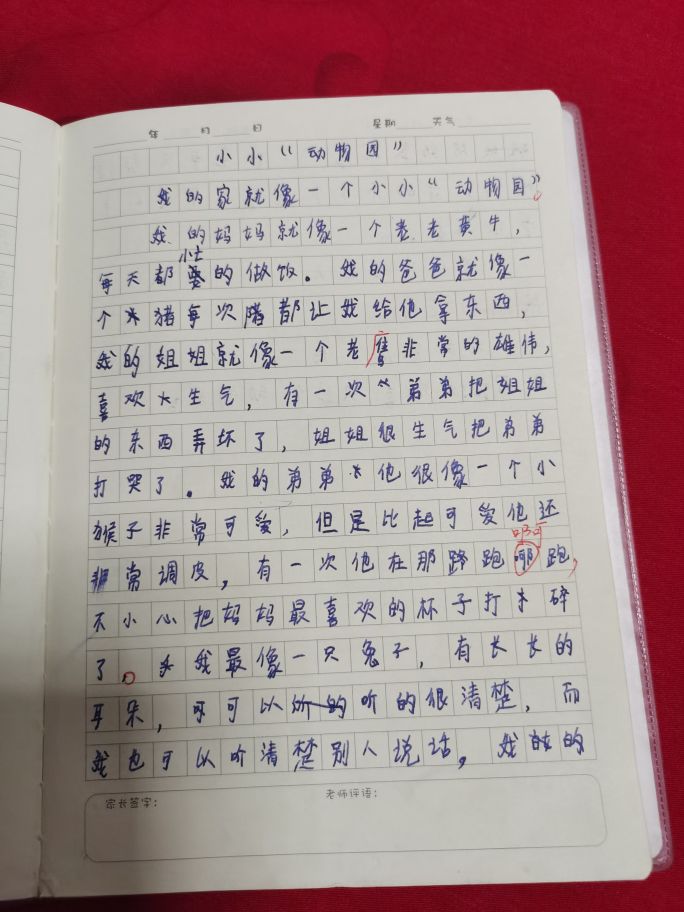 年 月 日 星期 天气
小小“动物园”
我的家就像一个小小“动物园”
我的妈妈就像一个老老黄牛，
每天都忙的做饭。我的爸爸就像一
个猪每次都让我给他拿东西，
我的姐姐就像一个老鹰非常的雄伟，
喜欢生气，有一次弟弟把姐姐
的东西弄坏了，姐姐很生气把弟弟
打哭了。我的弟弟他很像一个小
猴子非常可爱，但是比起可爱他还
啊
非常调皮，有一次他在那蹿跑啊跑，
不小心把妈妈最喜欢的杯子打碎
了。我最像一只兔子，有长长的
耳朵，可以听的很清楚，而
我也可以听清楚别人说话，我的
家长签字：
老师评语：